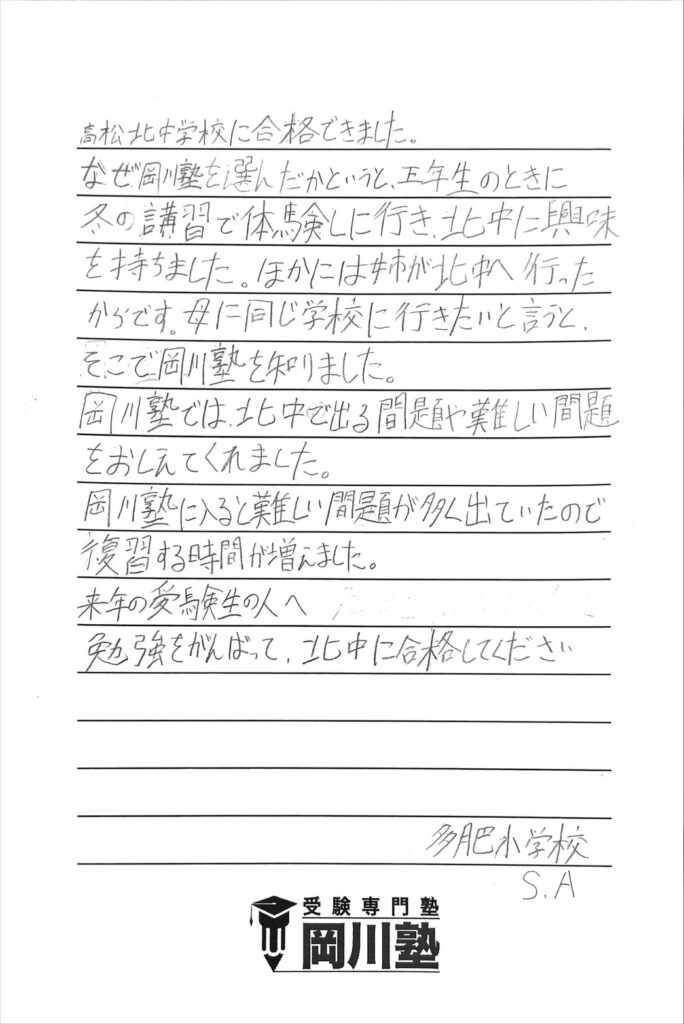 高松北中学校に合格できました。
なぜ岡川塾を選んだかというと、五年生のときに
冬の講習で体験しに行き、北中に興味
を持ちました。ほかには姉が北中へ行った
からです。母に同じ学校に行きたいと言うと、
そこで岡川塾を知りました。
岡川塾では、北中で出る問題や難しい問題
をおしえてくれました。
岡川塾に入ると難しい問題が多く出ていたので
復習する時間が増えました。
来年の受験生の人へ
勉強をがんばって、北中に合格してください
多肥小学校
S.A
受験専門塾
岡川塾